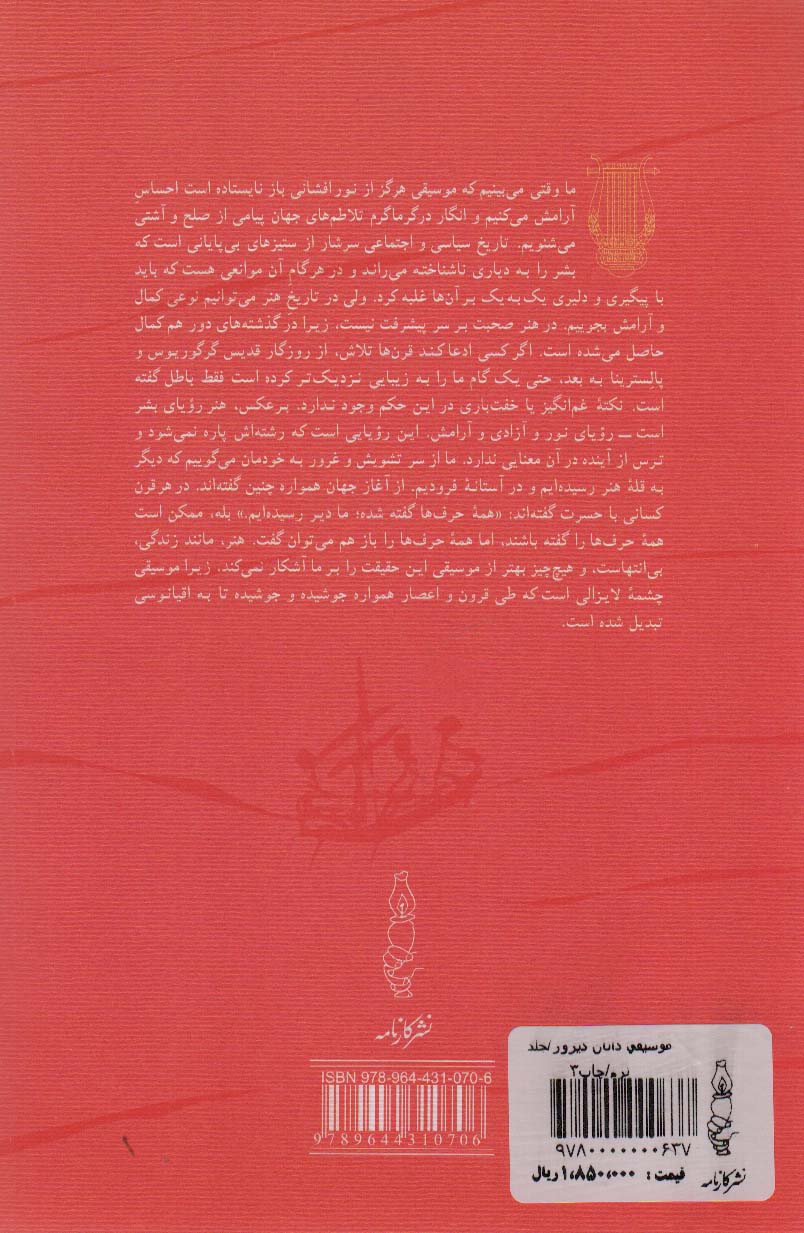 ما وقتی می‌بینیم که موسیقی هرگز از نورافشانی باز نایستاده است احساسِ
آرامش می‌کنیم و انگار درگرماگرم تلاطم‌های جهان پیامی از صلح و آشتی
می‌شنویم. تاریخ سیاسی و اجتماعی سرشار از ستیزهای بی‌پایانی است که
بشر را به دیاری ناشناخته می‌راند و در هرگامِ آن موانعی هست که باید
با پیگیری و دلیری یک‌به‌یک بر آن‌ها غلبه کرد. ولی در تاریخ هنر می‌توانیم نوعی کمال
و آرامش بجوییم. در هنر صحبت بر سر پیشرفت نیست، زیرا درگذشته‌های دور هم کمال
حاصل می‌شده است. اگر کسی ادعا کند قرن‌ها تلاش، از روزگار قدیس گرگوریوس و
پالسترینا به بعد، حتی یک گام ما را به زیبایی نزدیک‌تر کرده است فقط باطل گفته
است. نکتهٔ غم‌انگیز یا خفت‌باری در این حکم وجود ندارد. برعکس، هنر رؤیای بشر
است ــ رؤیای نور و آزادی و آرامش. این رؤیایی است که رشته‌اش پاره نمی‌شود و
ترس از آینده در آن معنایی ندارد. ما از سر تشویش و غرور به خودمان می‌گوییم که دیگر
به قلهٔ هنر رسیده‌ایم و در آستانهٔ فرودیم. از آغاز جهان همواره چنین گفته‌اند. در هر قرن
کسانی با حسرت گفته‌اند: «همهٔ حرف‌ها گفته شده؛ ما دیر رسیده‌ایم.» بله، ممکن است
همهٔ حرف‌ها را گفته باشند، اما همهٔ حرف‌ها را باز هم می‌توان گفت. هنر، مانند زندگی،
بی‌انتهاست، و هیچ‌چیز بهتر از موسیقی این حقیقت را بر ما آشکار نمی‌کند. زیرا موسیقی
چشمهٔ لایزالی است که طی قرون و اعصار همواره جوشیده و جوشیده تا به اقیانوسی
تبدیل شده است.
نشر کارنامه
ISBN 978-964-431-070-6
9 789644 310706
موسیقی دانان دیروز/جلد
نرم/چاپ۳
۹۷۸۰۰۰۰۰۰۰۶۳۷
قیمت : ۱،۸۵۰،۰۰۰ ریال
نشر کارنامه